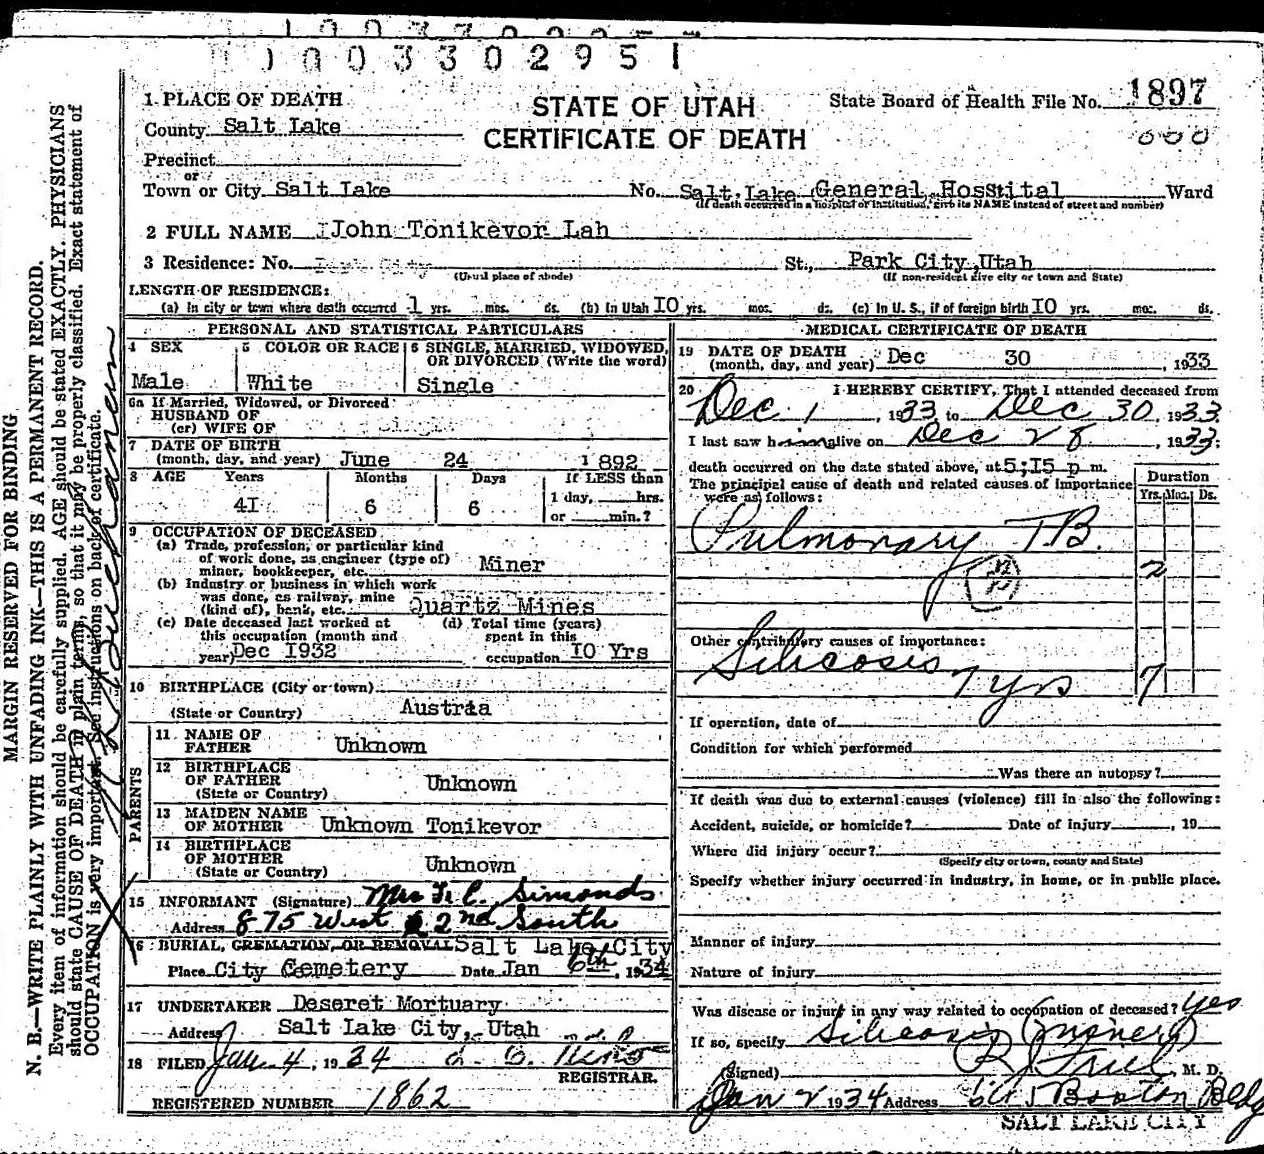 1003302951
1 PLACE OF DEATH
STATE OF UTAH
CERTIFICATE OF DEATH
State Board of Health File No. 1897
County Salt Lake
Precinct
or
Town or City Salt Lake No. Salt Lake General HosStital Ward
(If death occurred in a hospital or institution, give its NAME instead of street and number)
2 FULL NAME John Tonikevor Lah
3 Residence: No. St., Park City, Utah
(Usual place of abode) (If non-resident give city or town and State)
LENGTH OF RESIDENCE:
(a) In city or town where death occurred 1 yrs. mos. ds. (b) In Utah 10 yrs. mos. ds. (c) In U. S., if of foreign birth 10 yrs. mos. ds.
PERSONAL AND STATISTICAL PARTICULARS
4 SEX Male
5 COLOR OR RACE White
6 SINGLE, MARRIED, WIDOWED, OR DIVORCED (Write the word) Single
6a If Married, Widowed, or Divorced
HUSBAND OF
(or) WIFE OF
7 DATE OF BIRTH
(month, day, and year) June 24 1892
8 AGE Years Months Days If LESS than
41 6 6 1 day, hrs.
or min.?
9 OCCUPATION OF DECEASED
(a) Trade, profession, or particular kind
of work done, as engineer (type of)
miner, bookkeeper, etc. Miner
(b) Industry or business in which work
was done, as railway, mine
(kind of), bank, etc. Quartz Mines
(c) Date deceased last worked at
this occupation (month and
year) Dec 1932
(d) Total time (years)
spent in this
occupation 10 Yrs
10 BIRTHPLACE (City or town)
(State or Country) Austria
PARENTS
11 NAME OF
FATHER Unknown
12 BIRTHPLACE
OF FATHER Unknown
(State or Country)
13 MAIDEN NAME
OF MOTHER Unknown Tonikevor
14 BIRTHPLACE
OF MOTHER Unknown
(State or Country)
15 INFORMANT (Signature) Mrs F. C. Simonds
Address 875 West 2nd South
16 BURIAL, CREMATION, OR REMOVAL Salt Lake City
Place City Cemetery Date Jan 6th, 1934
17 UNDERTAKER Deseret Mortuary
Address Salt Lake City, Utah
18 FILED Jan 4, 1934
REGISTRAR.
REGISTERED NUMBER 1862
MEDICAL CERTIFICATE OF DEATH
19 DATE OF DEATH
(month, day, and year) Dec 30, 1933
20 I HEREBY CERTIFY, That I attended deceased from
Dec 1, 1933 to Dec 30 1933
I last saw him alive on Dec 28, 1933;
death occurred on the date stated above, at 5;15 p m.
The principal cause of death and related causes of importance
were as follows:
Duration
Yrs. Mos. Ds.
Pulmonary T.B.
2
Other contributory causes of importance:
Silicosis
7 yrs 7
If operation, date of
Condition for which performed
Was there an autopsy?
If death was due to external causes (violence) fill in also the following:
Accident, suicide, or homicide? Date of injury , 19
Where did injury occur?
(Specify city or town, county and State)
Specify whether injury occurred in industry, in home, or in public place.
Manner of injury
Nature of injury
Was disease or injury in any way related to occupation of deceased? Yes
If so, specify Silicosis (Miner)
(Signed) , M. D.
Jan 2 1934 Address Boston Bldg
SALT LAKE CITY
MARGIN RESERVED FOR BINDING
N. B.—WRITE PLAINLY WITH UNFADING INK—THIS IS A PERMANENT RECORD.
Every item of information should be carefully supplied. AGE should be stated EXACTLY. PHYSICIANS
should state CAUSE OF DEATH in plain terms, so that it may be properly classified. Exact statement of
OCCUPATION is very important. See instructions on back of certificate.